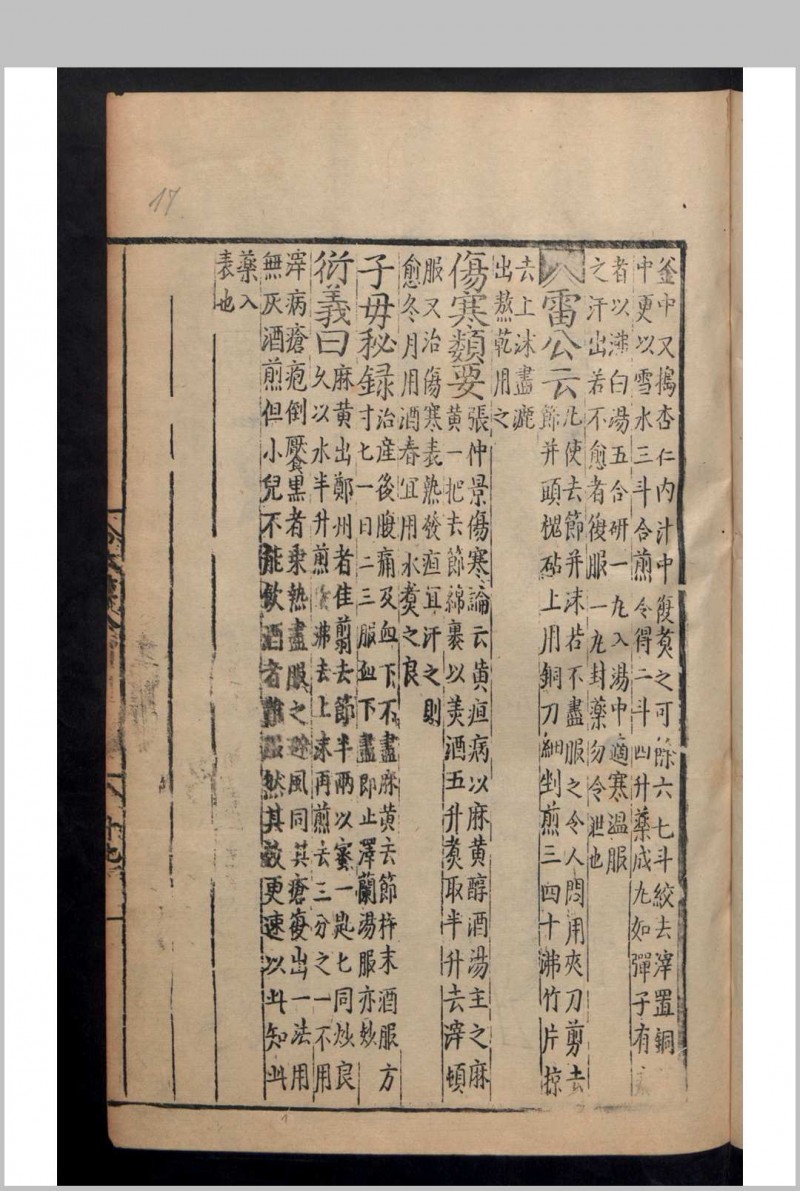 釜中又搗杏仁內汁中復煑之可餘六七斗絞去滓置銅
中更以雪水三斗合煎令得二斗四升藥成丸如彈子有
者以沸白湯五合研一丸入湯中適寒温服
之汗出若不愈者復服一丸封藥勿令泄也
雷公云
凡使去節并沫若不盡服之令人悶用夾刀剪去
節并頭槐砧上用銅刀細剉煎三四十沸竹片掠
去上沫盡漉
出熬乾用之
傷寒類要
張仲景傷寒論云黄疸病以麻黄醇酒湯主之麻
黄一把去節綿裹以美酒五升煑取半升去滓頓
服又治傷寒表熱發疸宜汗之則
愈冬月用酒春宜用水煑之良
子母秘録
治產後腹痛及血下不盡麻黄去節杵末酒服方
寸匕一日二三服血下盡即止澤蘭湯服亦妙
衍義曰
麻黄出鄭州者佳剪去節半兩以蜜一匙匕同炒良
久以水半升煎沸去上沫再煎去三分之一不用
滓病瘡疱倒靨黑者乘熱盡服之避風同其瘡復出一法用
無灰酒煎但小兒不能飲酒者難服然其效更速以此知此
藥入
表也
17